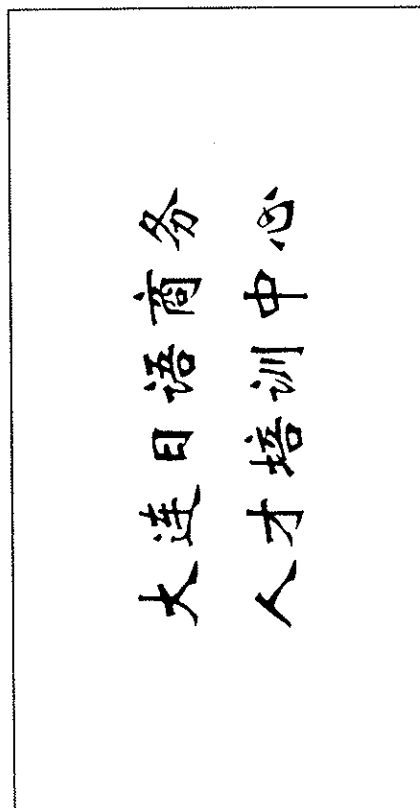 大连日语商务
人才培训中心